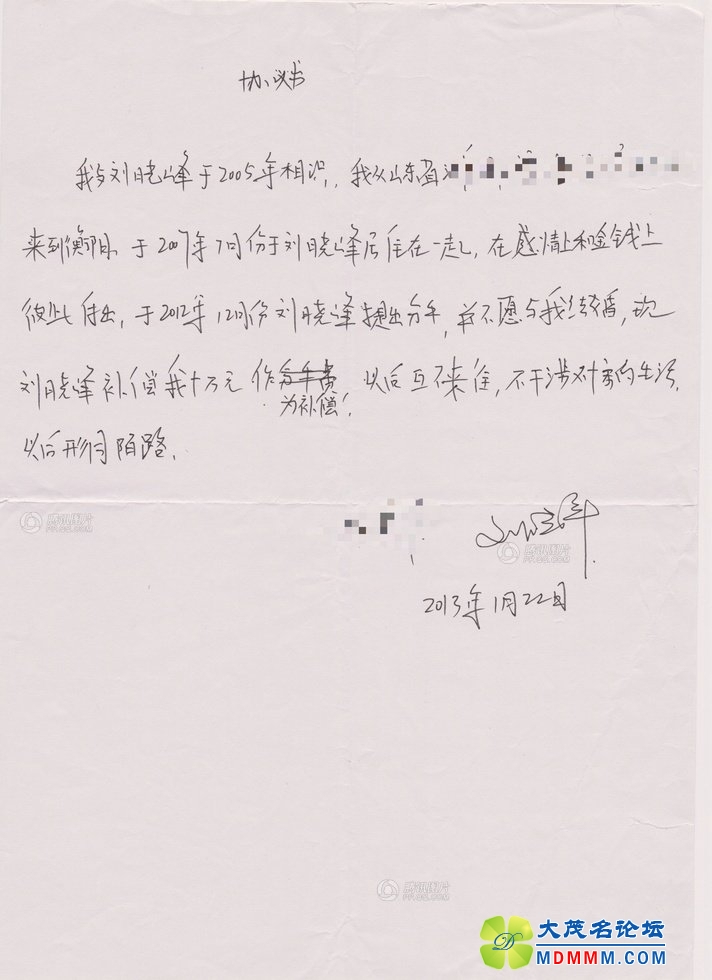 协议书
我与刘晓峰于2005年相识,我从山东省
来到衡阳,于2007年7月份于刘晓峰居住在一起,在感情上和金钱上
彼此付出,于2012年12月份刘晓峰提出分手,并不愿与我结婚,现
刘晓峰补偿我十万元作分手费,以后互不来往,不干涉对方的生活,
为补偿,
以后形同陌路.
腾讯图片
PP.QQ.COM
刘晓峰
腾讯图片
PP.QQ.COM
2013年1月22日
腾讯图片
PP.QQ.COM
大茂名论坛
MDMMM.COM